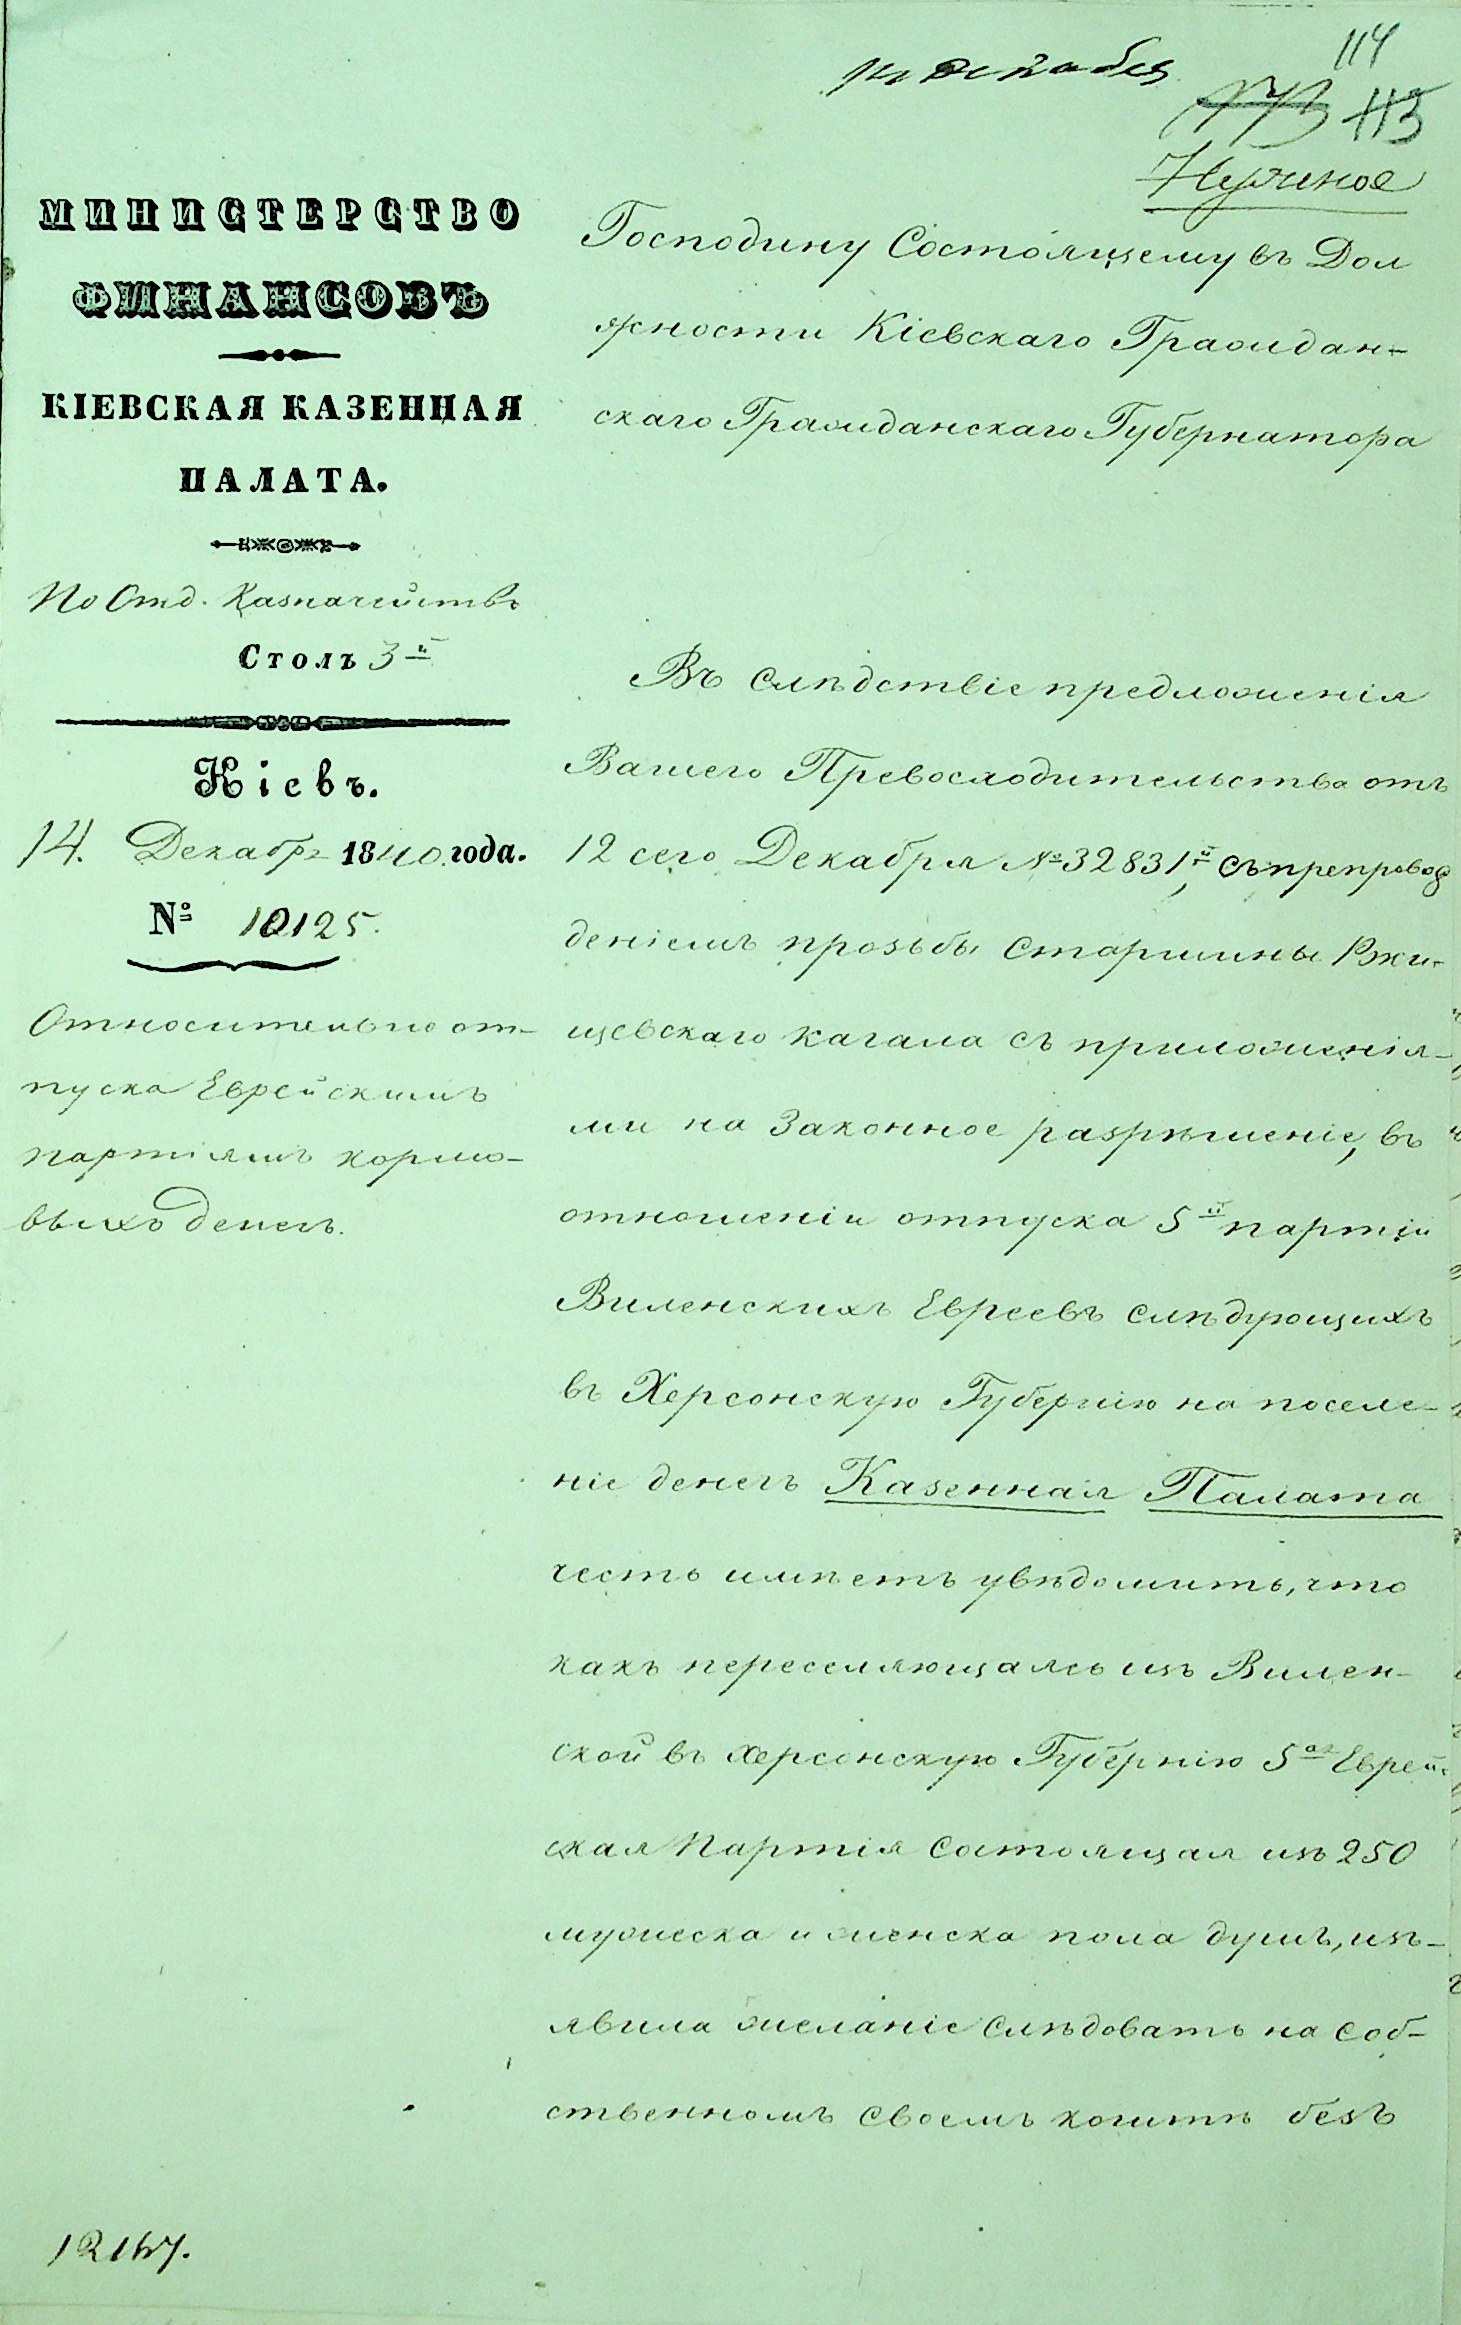 14 декабря
114
113
Нужное
МИНИСТЕРСТВО
ФИНАНСОВЪ
КІЕВСКАЯ КАЗЕННАЯ
ПАЛАТА.
По Отд. Казначействъ
Столъ 3й
Кіевъ.
14. Декабр 1840 года.
№ 10125.
Относительно от-
пуска Еврейскимъ
партіямъ кормо-
выхъ денегъ.
Господину Состоящему въ Дол
жности Кіевскаго Граждан-
скаго Гражданскаго Губернатора
Въ слѣдствіе предложенія
Вашего Превосходительства отъ
12 сего Декабря № 32831й, съ препровож
деніемъ прозьбы Старшины Ржи-
щевскаго кагала съ приложенія-
ми на законное разрѣшеніе, въ
отношеніи отпуска 5й партіи
Виленскихъ Евреевъ слѣдующихъ
въ Херсонскую Губернію на поселе-
ніе денегъ Казенная Палата
честь имѣетъ увѣдомить, что
какъ переселяющаясь изъ Вилен-
ской въ Херсонскую Губернію 5ая Еврей-
ская Партія состоящая изъ 250
мужеска и женска пола душъ, изъ-
явила желаніе слѣдовать на соб-
ственномъ своемъ коштѣ безъ
12167.